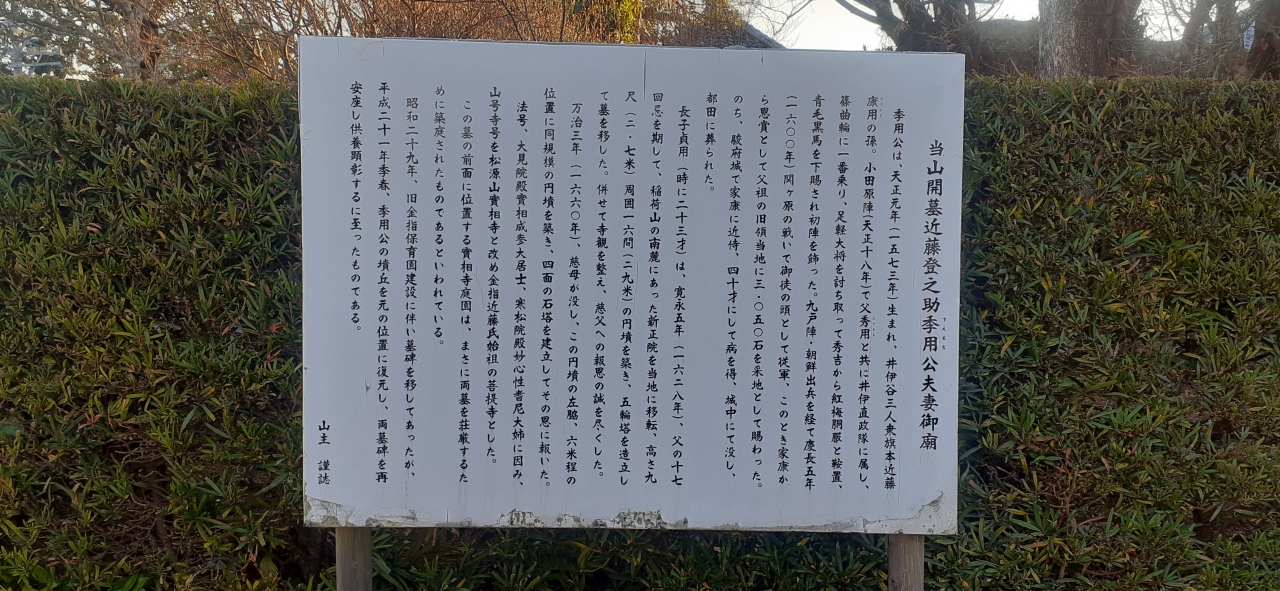 当山開基近藤登之助季用公夫妻御廟
すえもち
季用公は、天正元年（一五七三年）生まれ、井伊谷三人衆旗本近藤
康用の孫。小田原陣（天正十八年）で父秀用と共に井伊直政隊に属し、
篠曲輪に一番乗り、足軽大将を討ち取って秀吉から紅梅胴服と鞍置、
青毛黒馬を下賜され初陣を飾った。九戸陣・朝鮮出兵を経て慶長五年
（一六〇〇年）関ヶ原の戦いで御徒の頭として従軍、このとき家康か
ら恩賞として父祖の旧領当地に三・〇五〇石を采地として賜わった。
のち、駿府城で家康に近侍、四十才にして病を得、城中にて没し、
都田に葬られた。
長子貞用（時に二十三才）は、寛永五年（一六二八年）、父の十七
回忌を期して、稲荷山の南麓にあった新正院を当地に移転、高さ九
尺（二・七米）周囲一六間（二九米）の円墳を築き、五輪塔を造立し
て墓を移した。併せて寺観を整え、慈父への報恩の誠を尽くした。
万治三年（一六六〇年）、慈母が没し、この円墳の左脇、六米程の
位置に同規模の円墳を築き、四面の石塔を建立してその恩に報いた。
法号、大見院殿實相成参大居士、寒松院殿妙心性耆尼大姉に因み、
山号寺号を松源山實相寺と改め金指近藤氏始祖の菩提寺とした。
この墓の前面に位置する實相寺庭園は、まさに両墓を荘厳するた
めに築庭されたものであるといわれている。
昭和二十九年、旧金指保育園建設に伴い墓碑を移してあったが、
平成二十一年季春、季用公の墳丘を元の位置に復元し、両墓碑を再
安座し供養顕彰するに至ったものである。
山主　謹誌